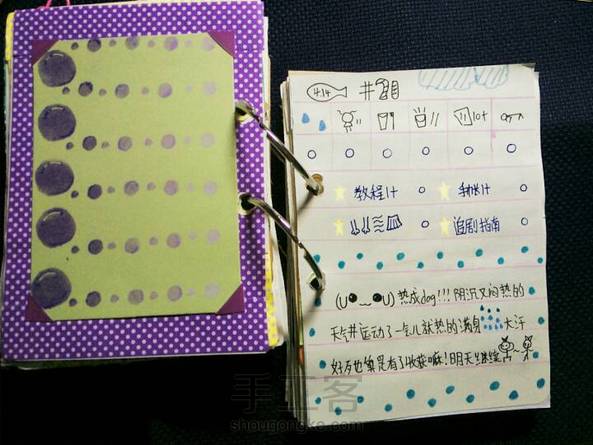 414 #2
10+
教程1+ 手帐1+
追剧指南
热成dog!!! 阴沉又闷热的
天气井 运动了一会儿就热的满身 大汗
好歹也算是有了收获嘛! 明天继续
手工客
shougongke.com